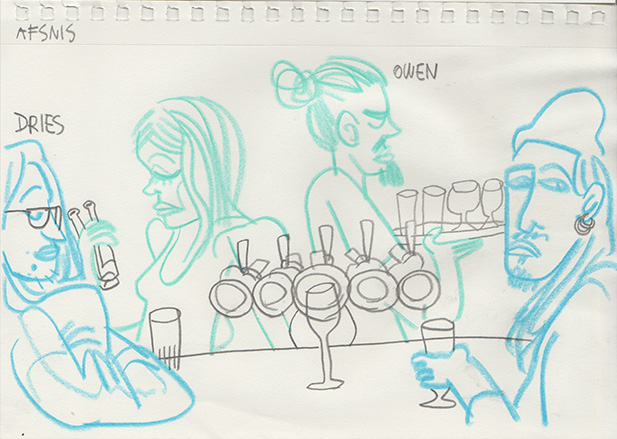 AFSNIS
OWEN
DRIES